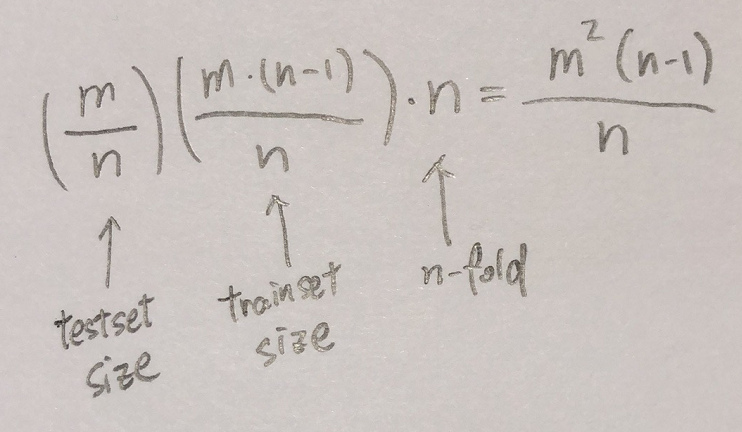 (m/n)(m·(n-1)/n)·n = m²(n-1)/n
testset size
trainset size
n-fold